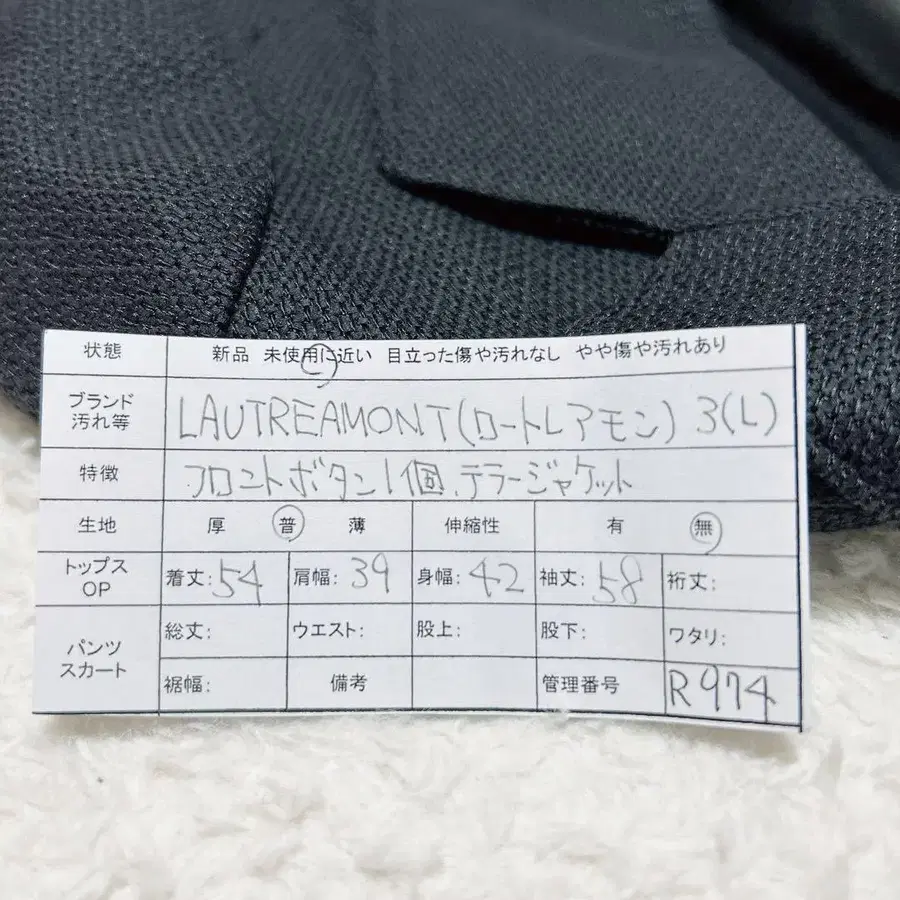 状態 新品 未使用に近い 目立った傷や汚れなし やや傷や汚れあり
ブランド
汚れ等 LAUTREAMONT(ロートレアモン) 3(L)
特徴 フロントボタン1個、テラージャケット
生地 厚 普 薄 伸縮性 有 無
トップス
OP 着丈:54 肩幅:39 身幅:42 袖丈:58 裄丈:
パンツ
スカート 総丈: ウエスト: 股上: 股下: ワタリ:
裾幅: 備考 管理番号 R974